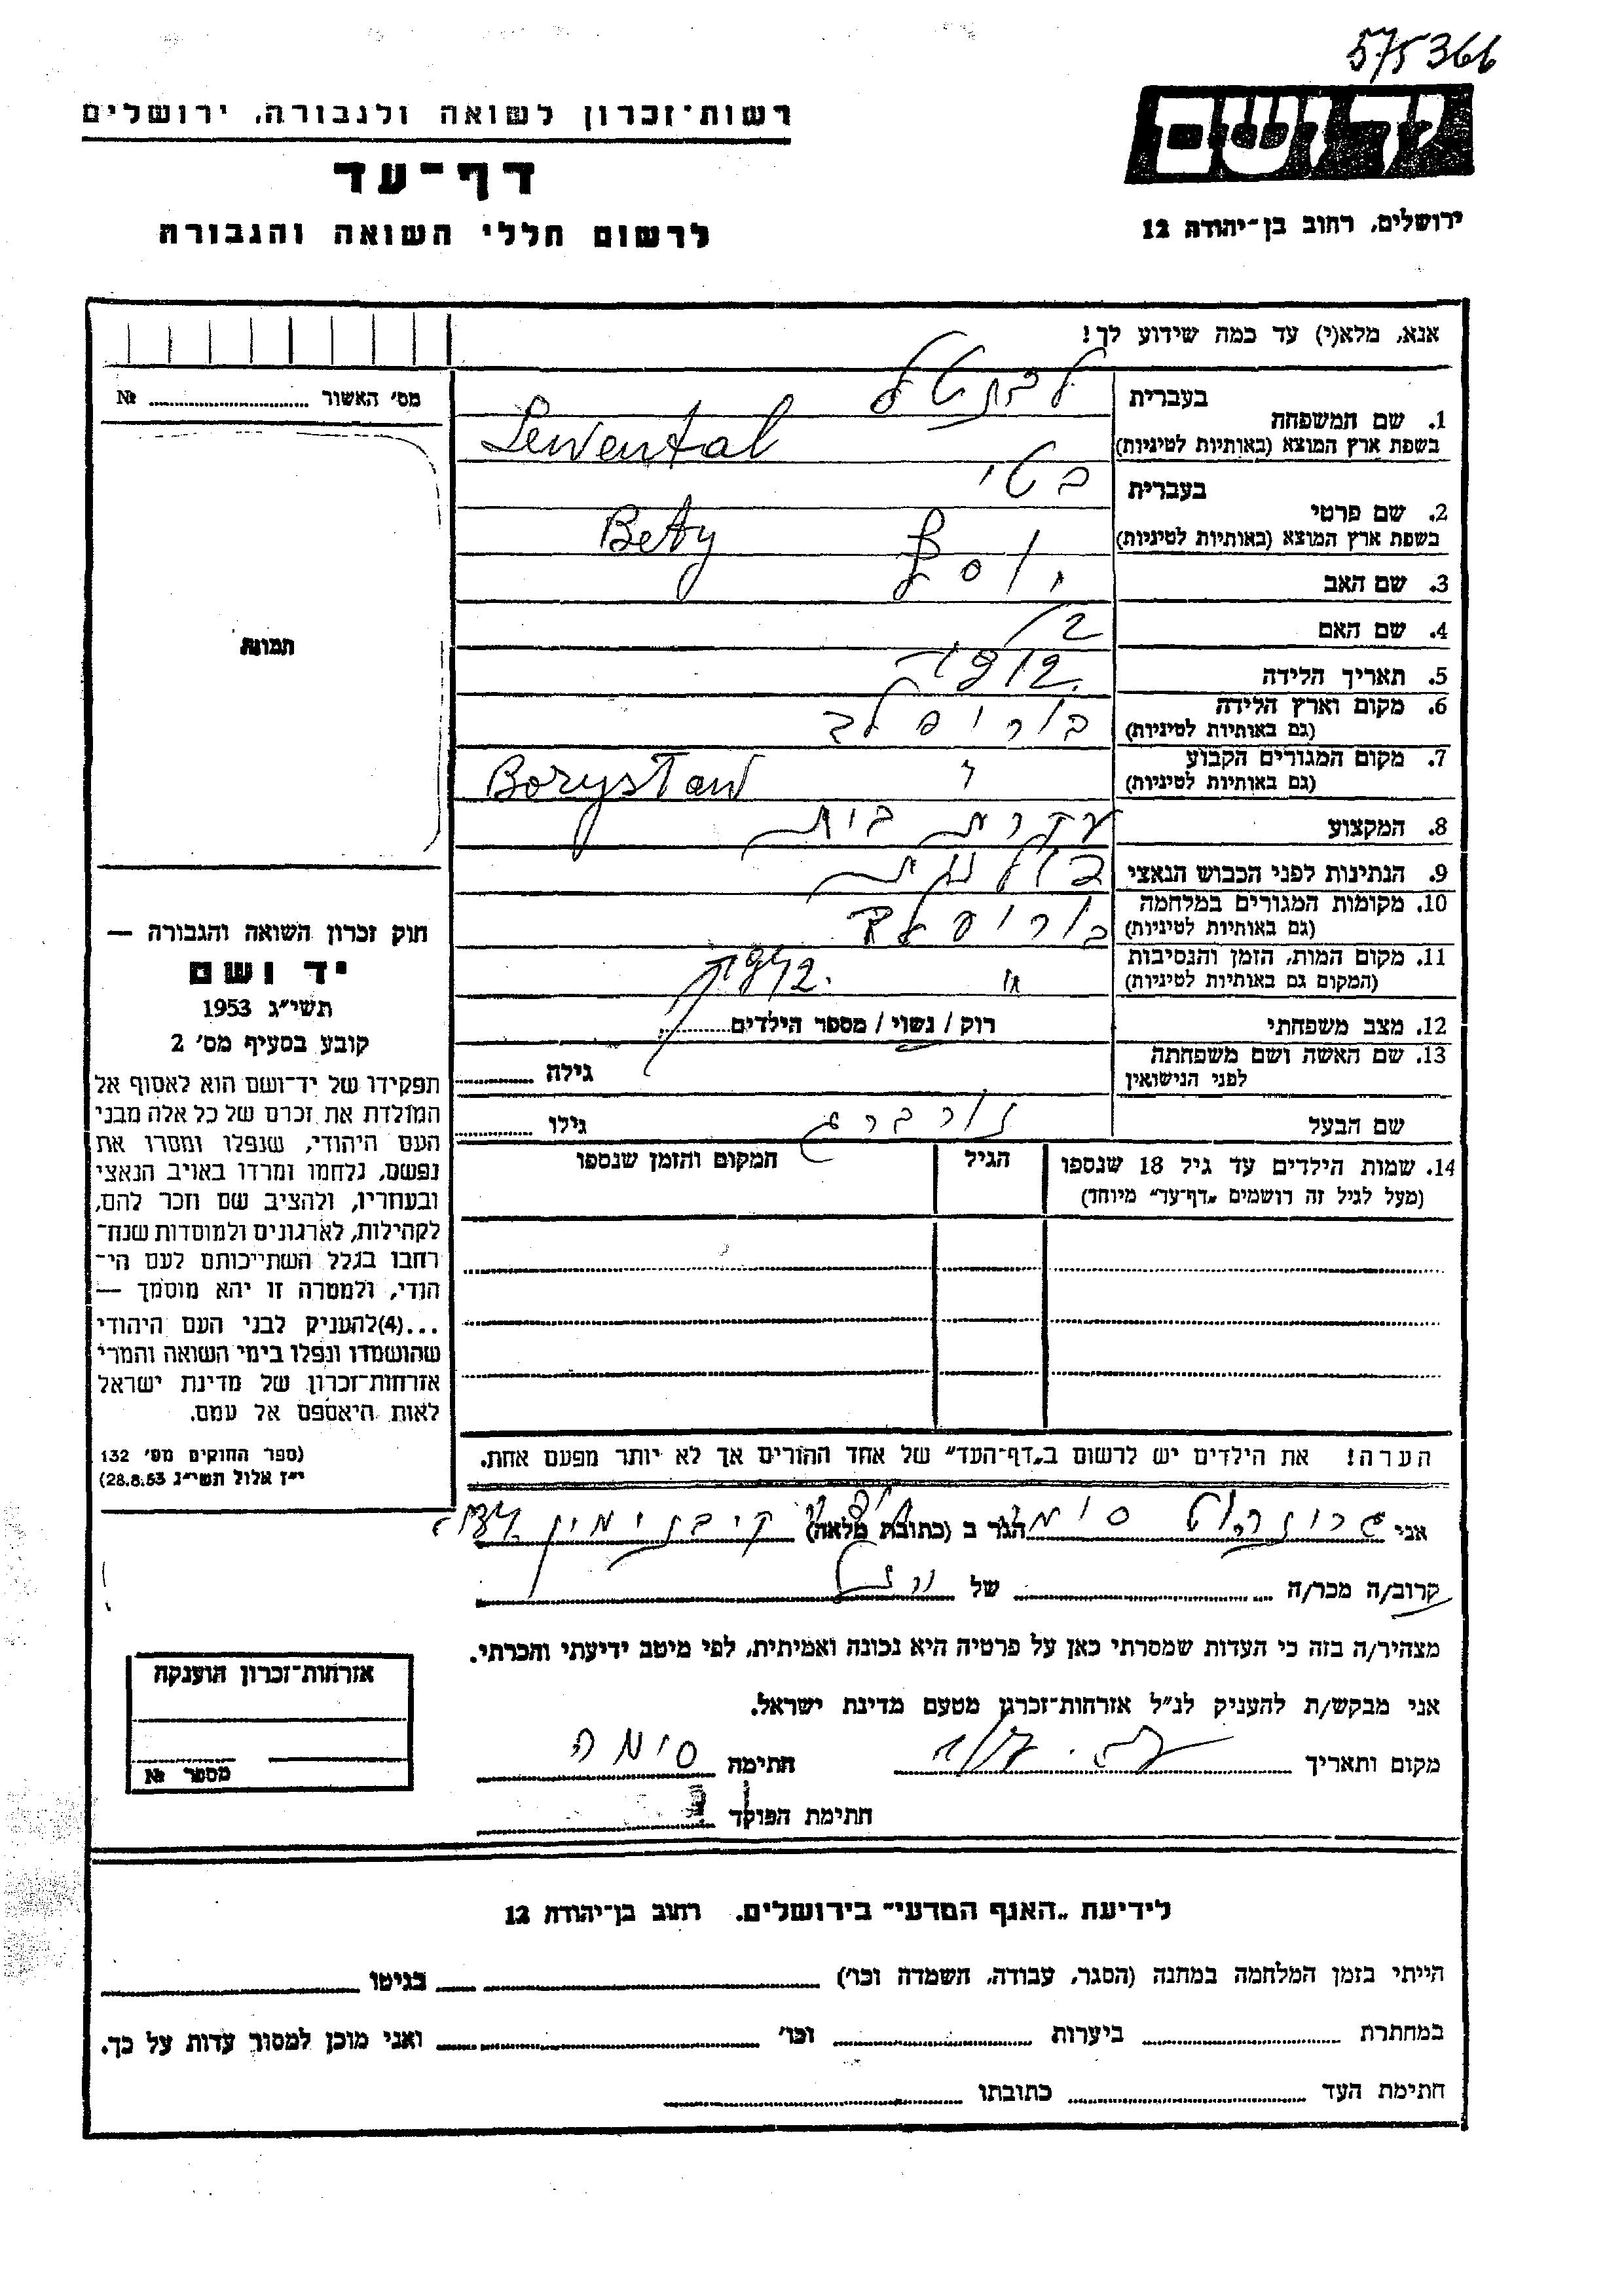 575366
יד ושם
ירושלים, רחוב בן-יהודה 12
רשות-זכרון לשואה ולגבורה, ירושלים
דף-עד
לרשום חללי השואה והגבורה
אנא, מלא(י) עד כמה שידוע לך!
1. שם המשפחה
בעברית
בשפת ארץ המוצא (באותיות לטיניות) Lewental
2. שם פרטי
בעברית בטי
בשפת ארץ המוצא (באותיות לטיניות) Bety
3. שם האב יוסף
4. שם האם
5. תאריך הלידה
6. מקום וארץ הלידה
(גם באותיות לטיניות) בוריסלב
7. מקום המגורים הקבוע
(גם באותיות לטיניות) Borystaw
8. המקצוע עקרת בית
9. הנתינות לפני הכבוש הנאצי פולנית
10. מקומות המגורים במלחמה
(גם באותיות לטיניות) בוריסלב
11. מקום המות, הזמן והנסיבות
(המקום גם באותיות לטיניות)
12. מצב משפחתי רוק / נשוי / מספר הילדים
13. שם האשה ושם משפחתה
לפני הנישואין גילה
שם הבעל נורברט גילו
14. שמות הילדים עד גיל 18 שנספו
(מעל לגיל זה רושמים „דף-עד" מיוחד)
הגיל
המקום והזמן שנספו
הערה! את הילדים יש לרשום ב„דף-העד" של אחד ההורים אך לא יותר מפעם אחת.
מס' האשור № 
תמונה
חוק זכרון השואה והגבורה —
יד ושם
תשי"ג 1953
קובע בסעיף מס' 2
תפקידו של יד-ושם הוא לאסוף אל
המולדת את זכרם של כל אלה מבני
העם היהודי, שנפלו ומסרו את
נפשם, נלחמו ומרדו באויב הנאצי
ובעוזריו, ולהציב שם וזכר להם,
לקהילות, לארגונים ולמוסדות שנח-
רבו בגלל השתייכותם לעם הי-
הודי, ולמטרה זו יהא מוסמך —
...(4) להעניק לבני העם היהודי
שהושמדו ונפלו בימי השואה והמרי
אזרחות-זכרון של מדינת ישראל
לאות היאספם אל עמם.
(ספר החוקים מס' 132
י"ז אלול תשי"ג 28.8.53)
אני סימה הגר ב (כתובת מלאה)
קרוב/ה מכר/ה של
מצהיר/ה בזה כי העדות שמסרתי כאן על פרטיה היא נכונה ואמיתית, לפי מיטב ידיעתי והכרתי.
אני מבקש/ת להעניק לנ"ל אזרחות-זכרון מטעם מדינת ישראל.
מקום ותאריך חתימה סימה
חתימת הפוקד
אזרחות-זכרון הוענקה
מספר №
לידיעת „האגף המדעי" בירושלים. רחוב בן-יהודה 12
הייתי בזמן המלחמה במחנה (הסגר, עבודה, השמדה וכו') בגיטו
במחתרת ביערות וכו' ואני מוכן למסור עדות על כך.
חתימת העד כתובתו